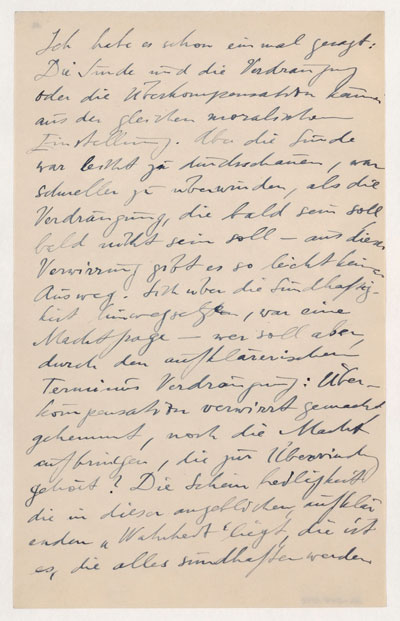 Ich habe es schon einmal gesagt:
Die Sünde und die Verdrängung
oder die Überkompensation kamen
aus der gleichen moralischen
Einstellung. Aber die Sünde
war leicht zu durchschauen, war
schneller zu überwinden, als die
Verdrängung, die bald sein soll
bald nicht sein soll – aus dieser
Verwirrung gibt es so leicht keinen
Ausweg. Sich über die Sündhaftig-
keit hinwegsetzen, war eine
Machtfrage – wer soll aber,
durch den aufklärerischen
Terminus Verdrängung: Über-
kompensation verwirrt gemacht
gehemmt, noch die Macht
aufbringen, die zur Überwindung
gehört? Die Scheinheiligkeit
die in dieser angeblichen, aufklär
enden „Wahrheit“ liegt, die ist
es, die alles sündhafter werden